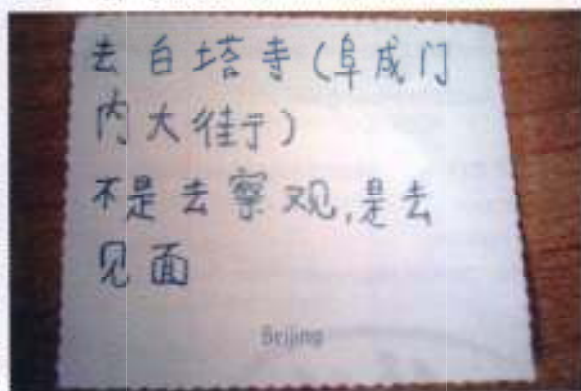 去白塔寺(阜成门
内大街)
不是去察观,是去
见面
Beijing